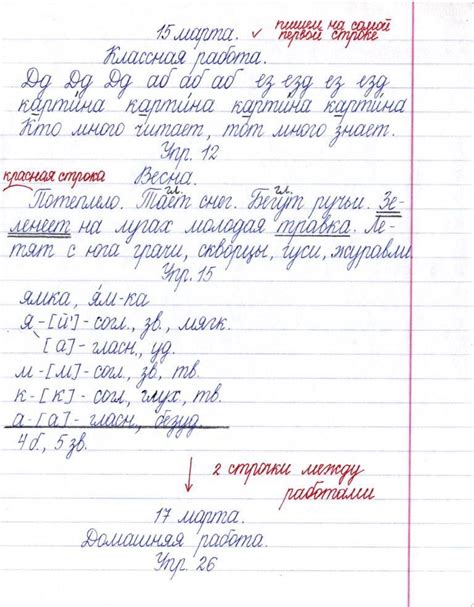 15 марта. ✓ пишем на самой
первой строке
Классная работа.
Дд Дд Дд аб аб аб ез езд ез езд
картина картина картина картина
Кто много читает, тот много знает.
Упр. 12
красная строка Весна.
гл. гл.
Потеплело. Тает снег. Бегут ручьи. Зе-
ленеет на лугах молодая травка. Ле-
тят с юга грачи, скворцы, гуси, журавли.
Упр. 15
ямка, ям-ка
я-[й']-согл., зв., мягк.
[а]-гласн., уд.
м-[м]-согл., зв., тв.
к-[к]-согл., глух., тв.
а-[а]-гласн., безуд.
4 б., 5 зв.
2 строчки между
работами
17 марта.
Домашняя работа.
Упр. 26